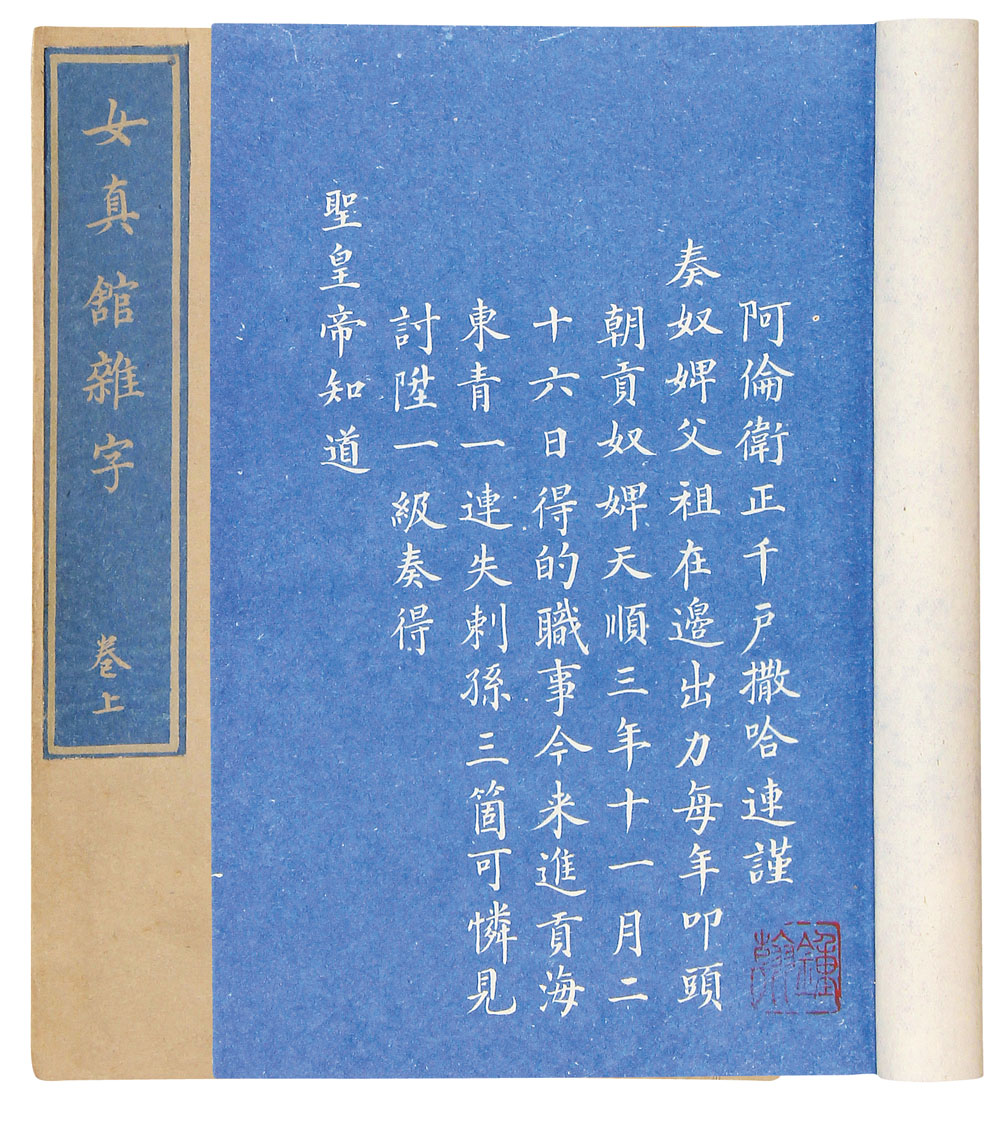 女真舘雜字
卷上
阿倫衛正千户撒哈連謹
奏奴婢父祖在邊出力每年叩頭
朝貢奴婢天順三年十一月二
十六日得的職事今来進貢海
東青一連失剌孫三箇可憐見
討陞一級奏得
聖皇帝知道